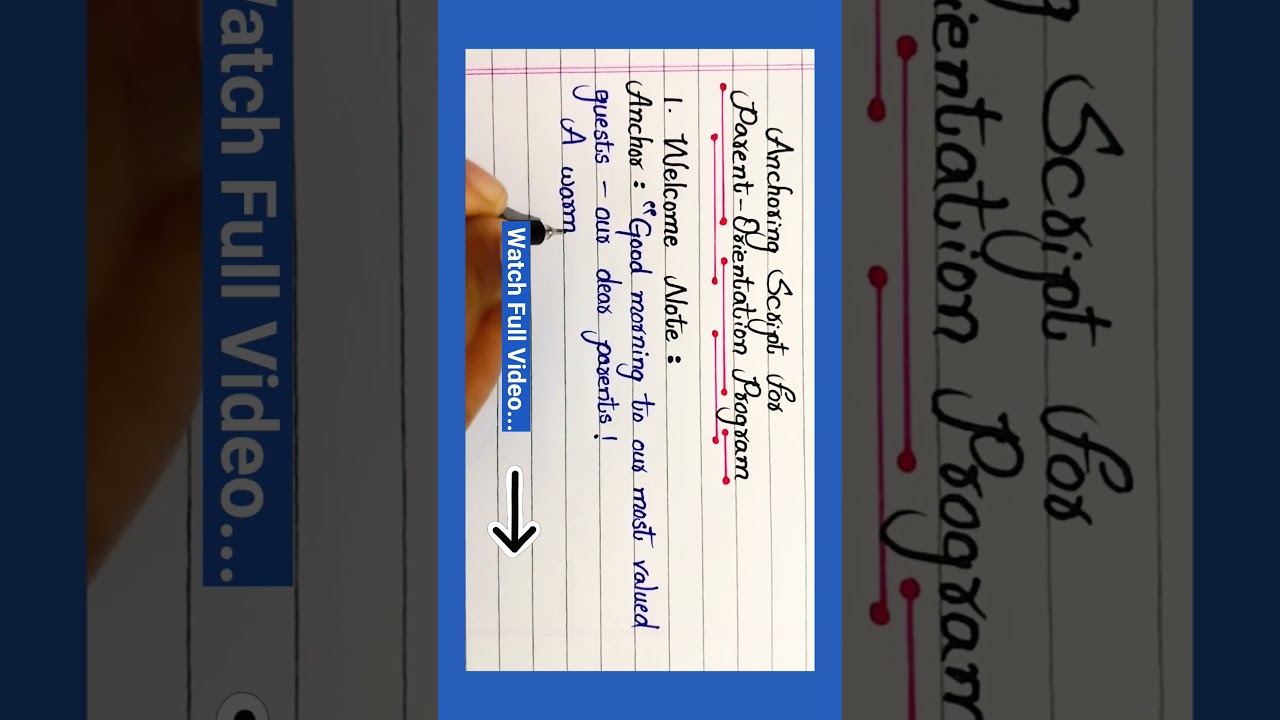 Anchoring Script for
Parent-Orientation Program
1. Welcome Note :
Anchor : "Good morning to our most valued
guests - our dear parents!
A warm
Watch Full Video...
g Script for
ientation Program
Watch Full Video...